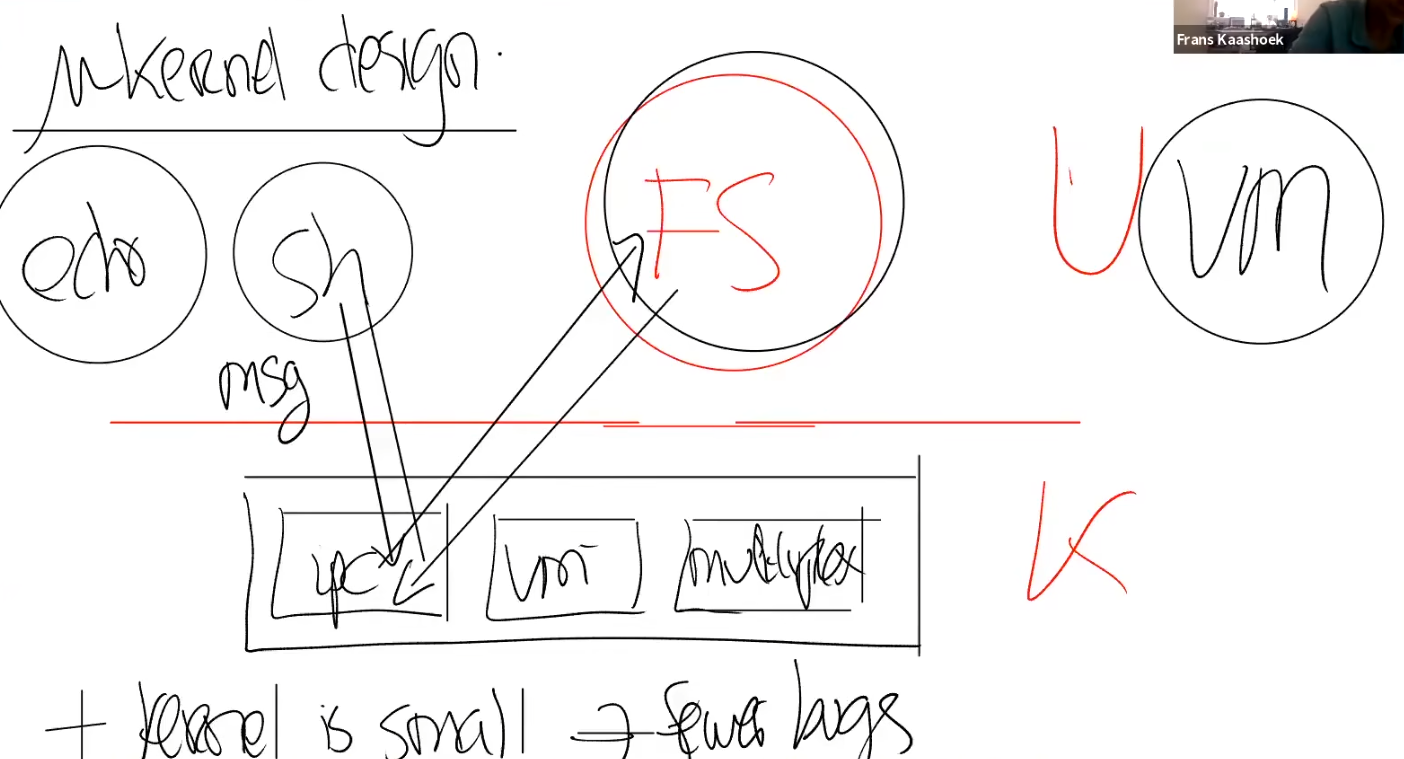 Frans Kaashoek
μkernel design.
echo sh FS U VM
msg
ipc vm multiplex K
+ kernel is small → fewer bugs